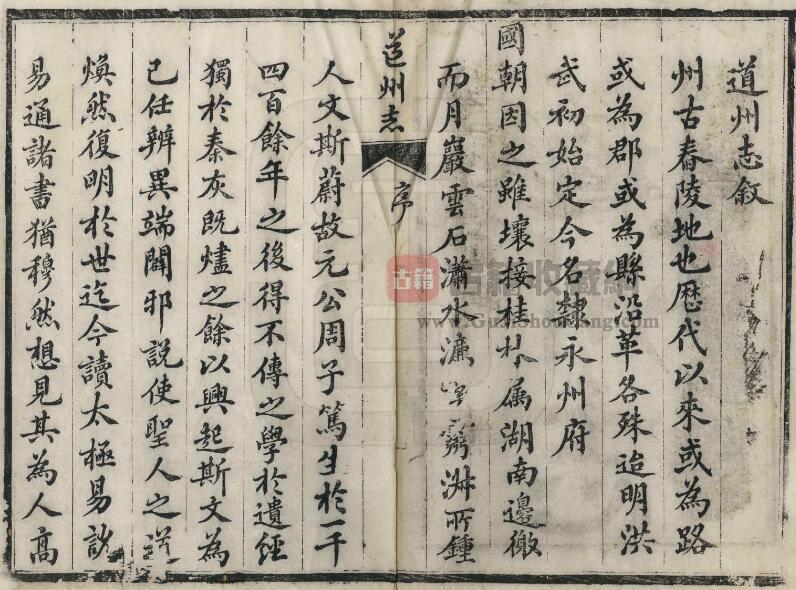 道州志敘
州古舂陵地也歷代以來或為路
或為郡或為縣沿革各殊迨明洪
武初始定今名隸永州府
國朝因之雖壤接桂林属湖南邊徼
而月巖雲石瀟水濂 淑所鍾
道州志
序
人文斯蔚故元公周子篤生於一千
四百餘年之後得不傳之學於遺經
獨於秦灰既燼之餘以興起斯文為
己任辨異端闢邪說使聖人之道
煥然復明於世迄今讀太極易說
易通諸書猶穆然想見其為人高
古籍
古籍收藏網